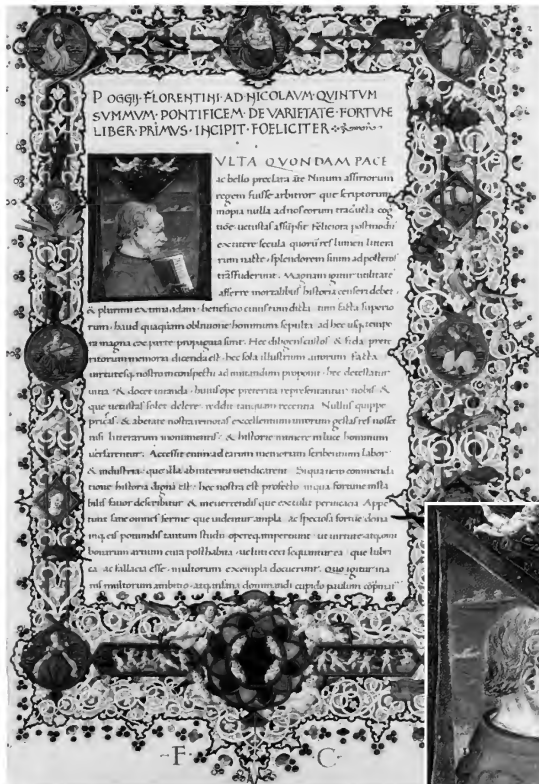 POGGII·FLORENTINI·AD·NICOLAVM·QVINTVM
SVMMVM·PONTIFICEM·DE VARIETATE·FORTVNE
LIBER·PRIMVS·INCIPIT·FOELICITER
VLTA QVONDAM PACE
ac bello preclara ante Ninum assiriorum
regem fuisse arbitror que scriptorum
inopia nulla ad nos eorum
excutere secula quorum res lumen littera
rum splendorem suum ad posteros
Magnam igitur utilitatem
afferre mortalibus historia censeri debet
& plurimi beneficio cum tum facta superio
rum haud quaquam obliuione hominum sepulta ad hec usque tempo
ra magna & fida prete
ritorum memoria dicenda est hec sola illustrium uirorum facta
uirtutesque nostro in conspectu ad imitandum proponit hec detestatur
uitia & docet uitanda huius ope preterita representantur nobis &
que uetustas solet delere reddit tanquam recentia Nullius quippe
& ab etate nostra remotas excellentium uirorum gestas res nosset
nisi litterarum monumentis & historie munere in luce hominum
uersarentur Accessit enim ad earum memoriam scribentium labor
& industria que illa ab interitu uendicarent Siqua uero commenda
tione historia digna est hec nostra est profecto in qua fortune insta
bilis fauor describitur & in euertendis que extulit
tunt sane omnes ferme que uidentur ampla ac speciosa fortune dona
potiundis tantum studii impertiunt ut uirtute atque omni
bonarum artium cura posthabita ueluti ceci sequuntur ea que lubri
ca ac fallacia esse multorum exempla docuerunt Quo igitur ina
nis multorum ambitio atque infinita dominandi cupido paulum
F C